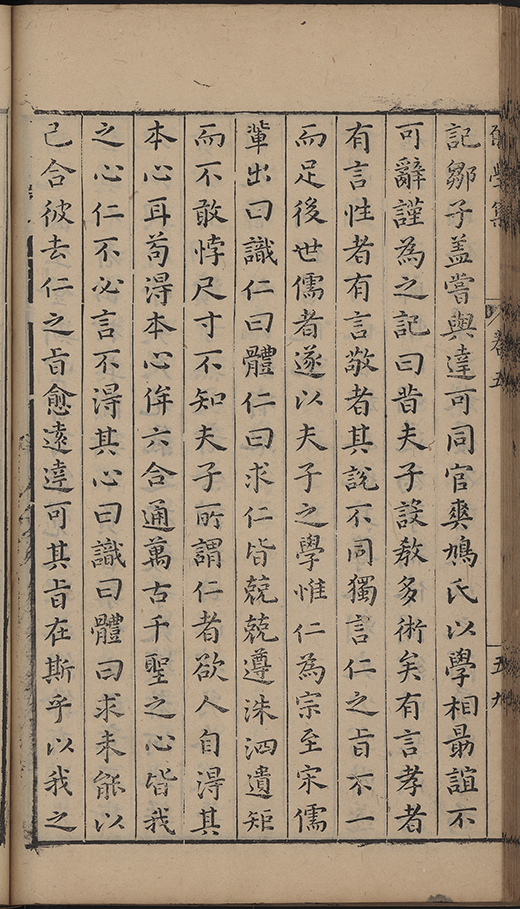 卷五
五九
記鄒子盖嘗與達可同官爽鳩氏以學相勗誼不
可辭謹為之記曰昔夫子設教多術矣有言孝者
有言性者有言敬者其說不同獨言仁之旨不一
而足後世儒者遂以夫子之學惟仁為宗至宋儒
軰出曰識仁曰體仁曰求仁皆兢兢遵洙泗遺矩
而不敢悖尺寸不知夫子所謂仁者欲人自得其
本心耳苟得本心侔六合通萬古千聖之心皆我
之心仁不必言不得其心曰識曰體曰求未能以
己合彼去仁之旨愈遠達可其旨在斯乎以我之